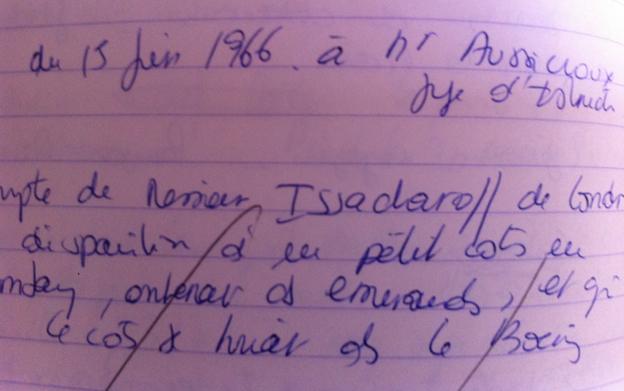 du 15 juin 1966. à Mr Aussicloux
juge d'
mpte de Monsieur Issadaroff de Londr
disparition d'un petit colis en
mbay, contenant des émeraudes, et qui
le colis se trouvait ds le Boeing